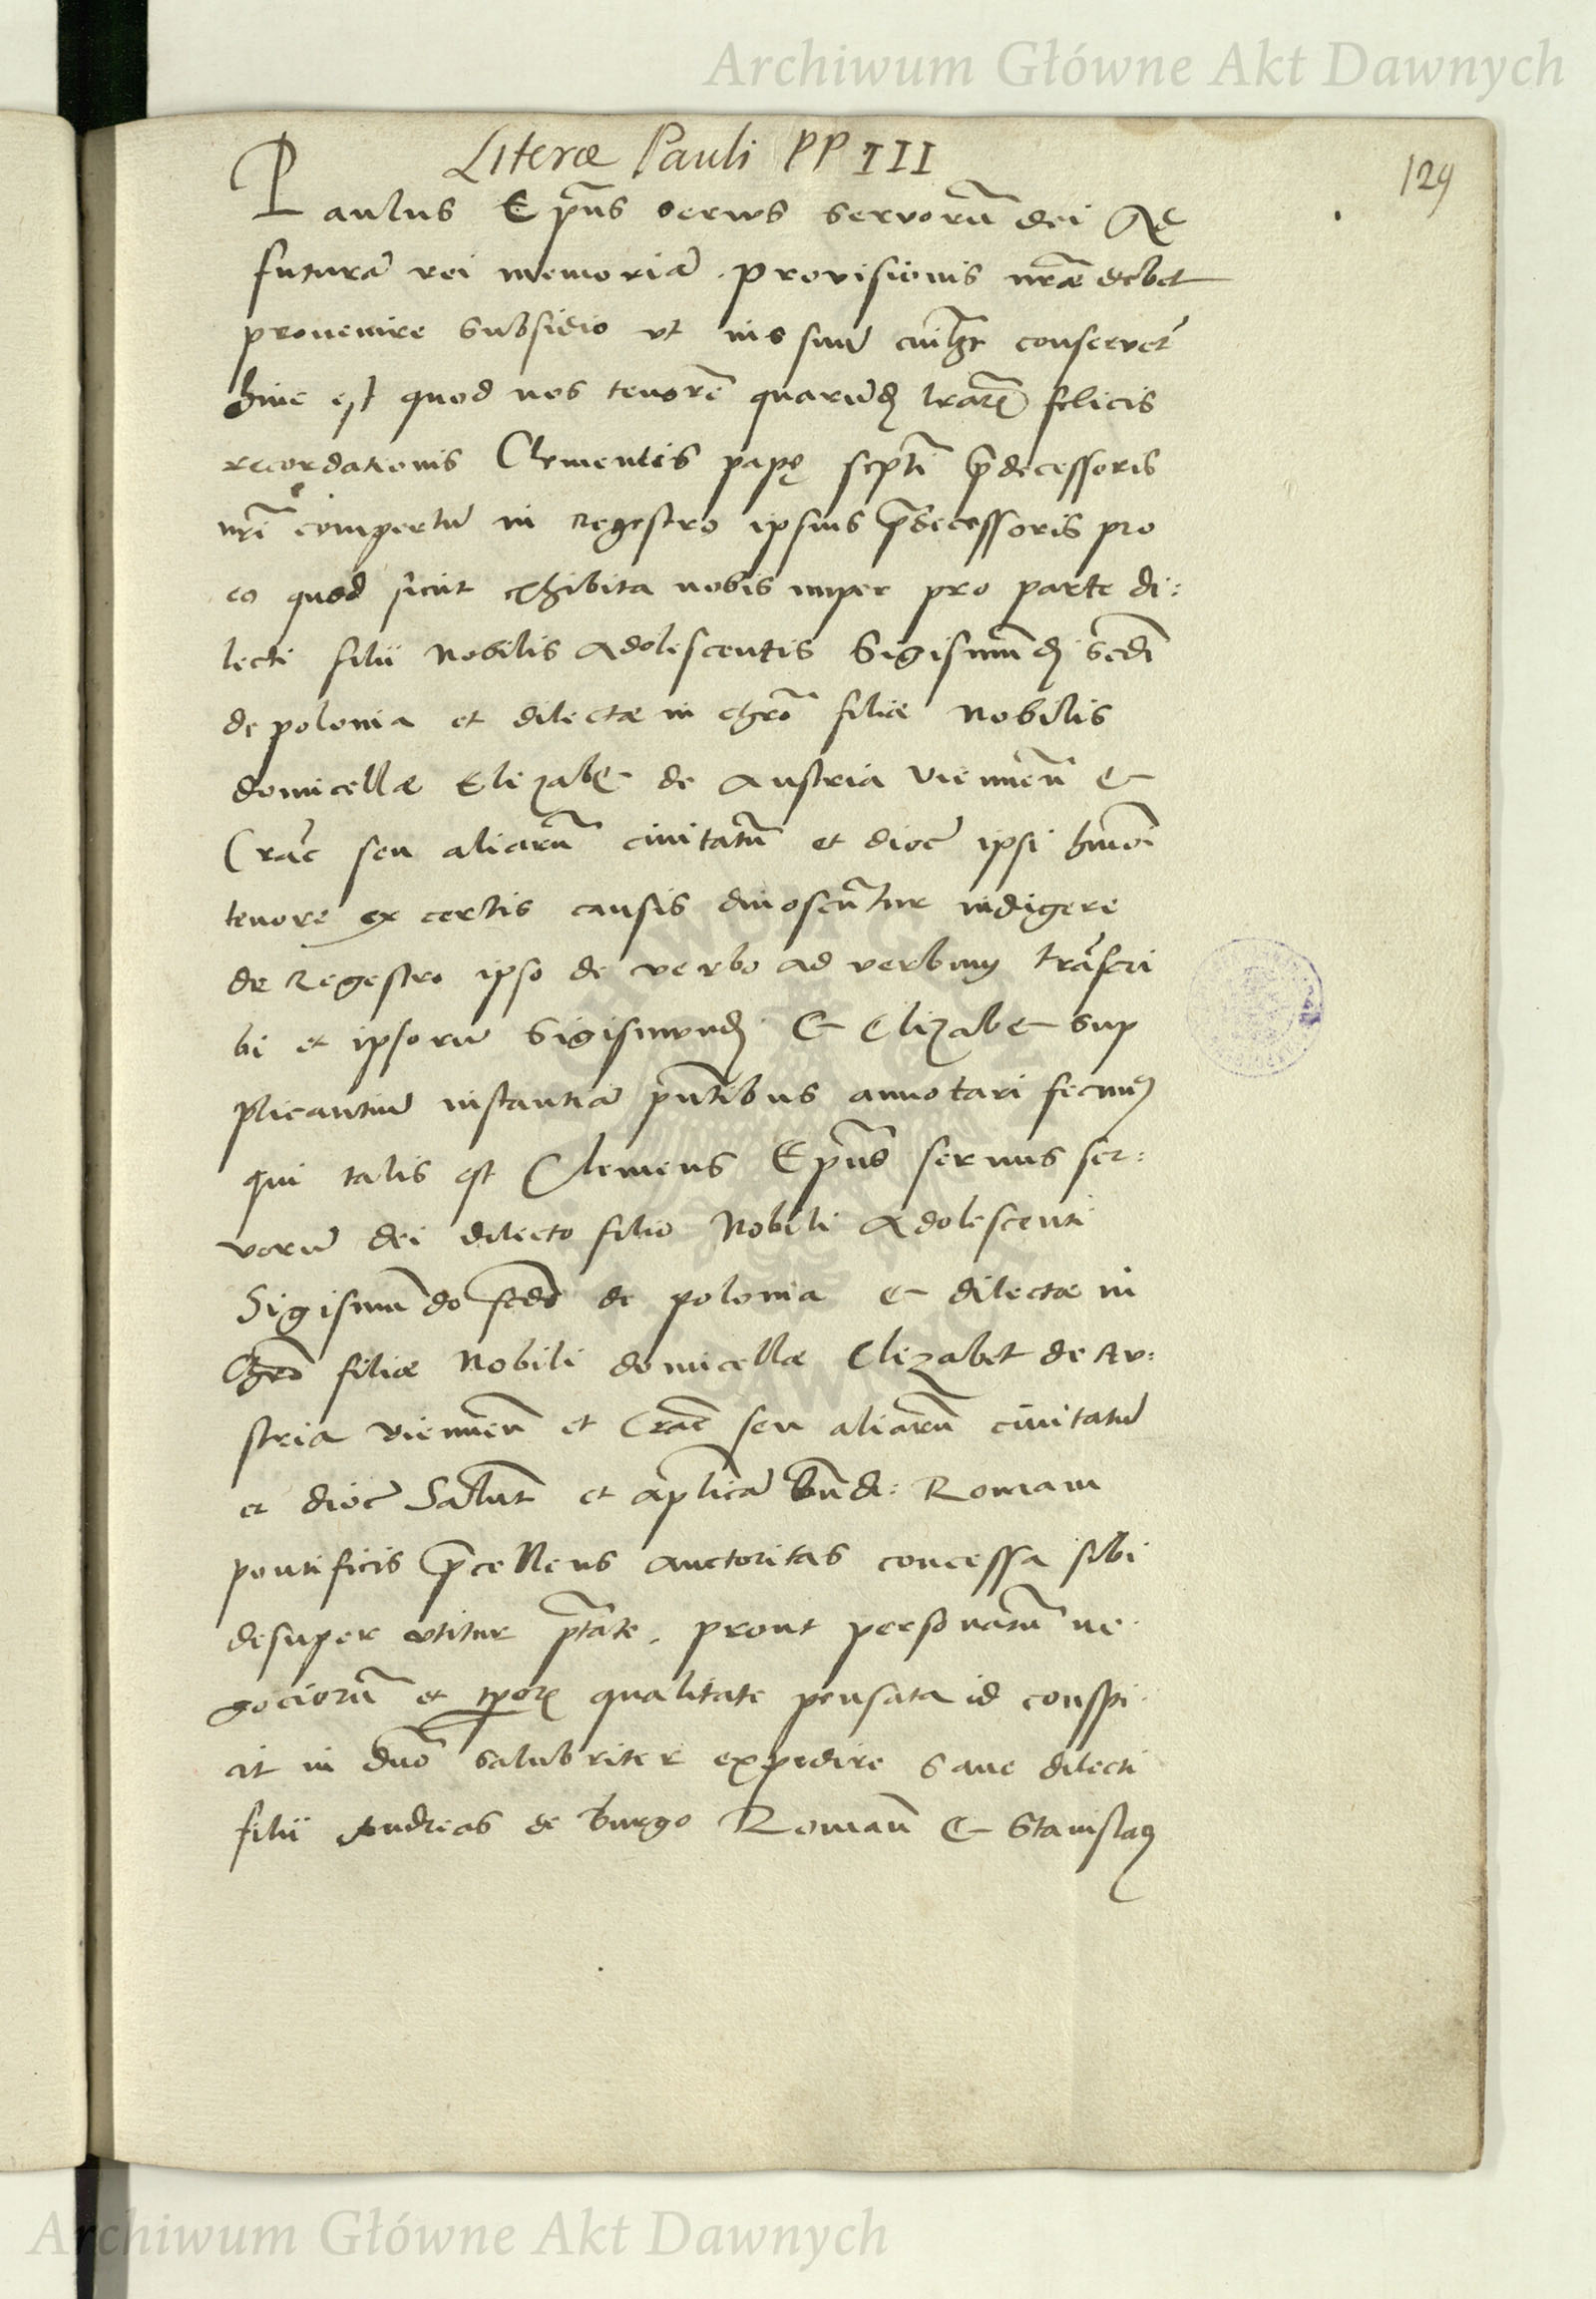 Archiwum Główne Akt Dawnych
Literæ Pauli PP III
129
Paulus Ep̃us servus servorũ dei Ad
futurã rei memoriã. Provisionis nr̃æ debet
provenire subsidio ut ius suũ cuilibet conservet̃
hinc est quod nos tenorẽ quarundã lrãrũ felicis
recordationis Clementis papę septĩ p̃decessoris
nrĩ compertũ in Regestro ipsius p̃decessoris pro
eo quod sicut exhibita nobis nuper pro parte di:
lecti filii Nobilis Adolescentis Sigismũdi Secdĩ
de polonia et dilectæ in chrõ filiæ Nobilis
domicellæ Elizabet de Austria Viennen̄ et
Crac̃ seu aliarũ civitatũ et dioc̃ ipsi hmõi
tenore ex certis causis dinoscũtur indigere
de Regestro ipso de verbo ad verbum trãscri
bi et ipsorũ Sigismundi et Elizabet sup
plicantiũ instantiã p̃ntibus annotari fecimus
qui talis est Clemens Ep̃us servus ser:
vorũ dei dilecto filio Nobili Adolescenti
Sigismũdo secdõ de polonia et dilectæ in
Chrõ filiæ Nobili domicellæ Elizabet de Au:
stria viennen̄ et Crac̃ seu aliarũ civitatũ
et dioc̃ Salut̃ et ap̃licã bñd: Romani
pontificis p̃cellens auctoritas concessa sibi
desuper utitur p̃tate, prout personarũ ne
gociorũ et tp̃orũ qualitate pensata id conspi
cit in dño salubriter expedire Sane dilecti
filii Andreas de Burgo Roman̄ et Stanislaus
Archiwum Główne Akt Dawnych